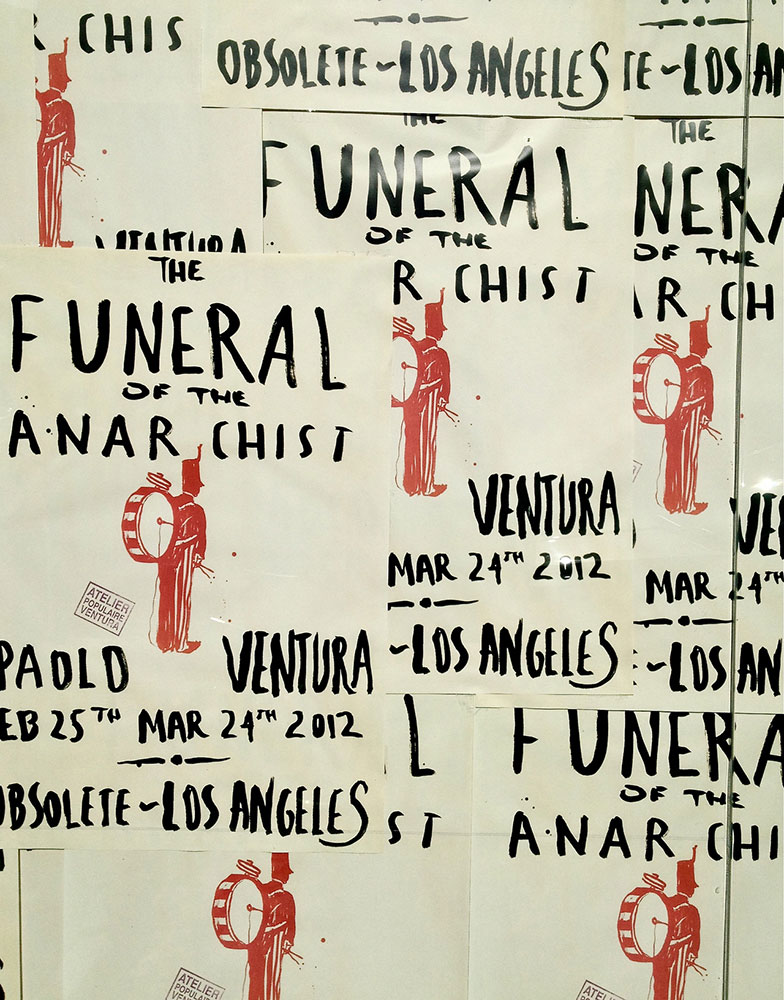 CHIS
VENTURA
OBSOLETE ~ LOS ANGELES
TE ~ LOS AN
THE
FUNERAL
OF THE
R CHIST
VENTURA
MAR 24TH 2012
~ LOS ANGELES
THE
NERA
OF THE
AR CH
VE
MAR 24TH
~ LOS AN
THE
FUNERAL
OF THE
A·NAR CHIST
ATELIER
POPULAIRE
VENTURA
PAOLO VENTURA
EB 25TH MAR 24TH 2012
OBSOLETE ~ LOS ANGELES
L
ST
ATELIER
POPULAIRE
FUNERA
OF THE
A·NAR CHI
ATELIER